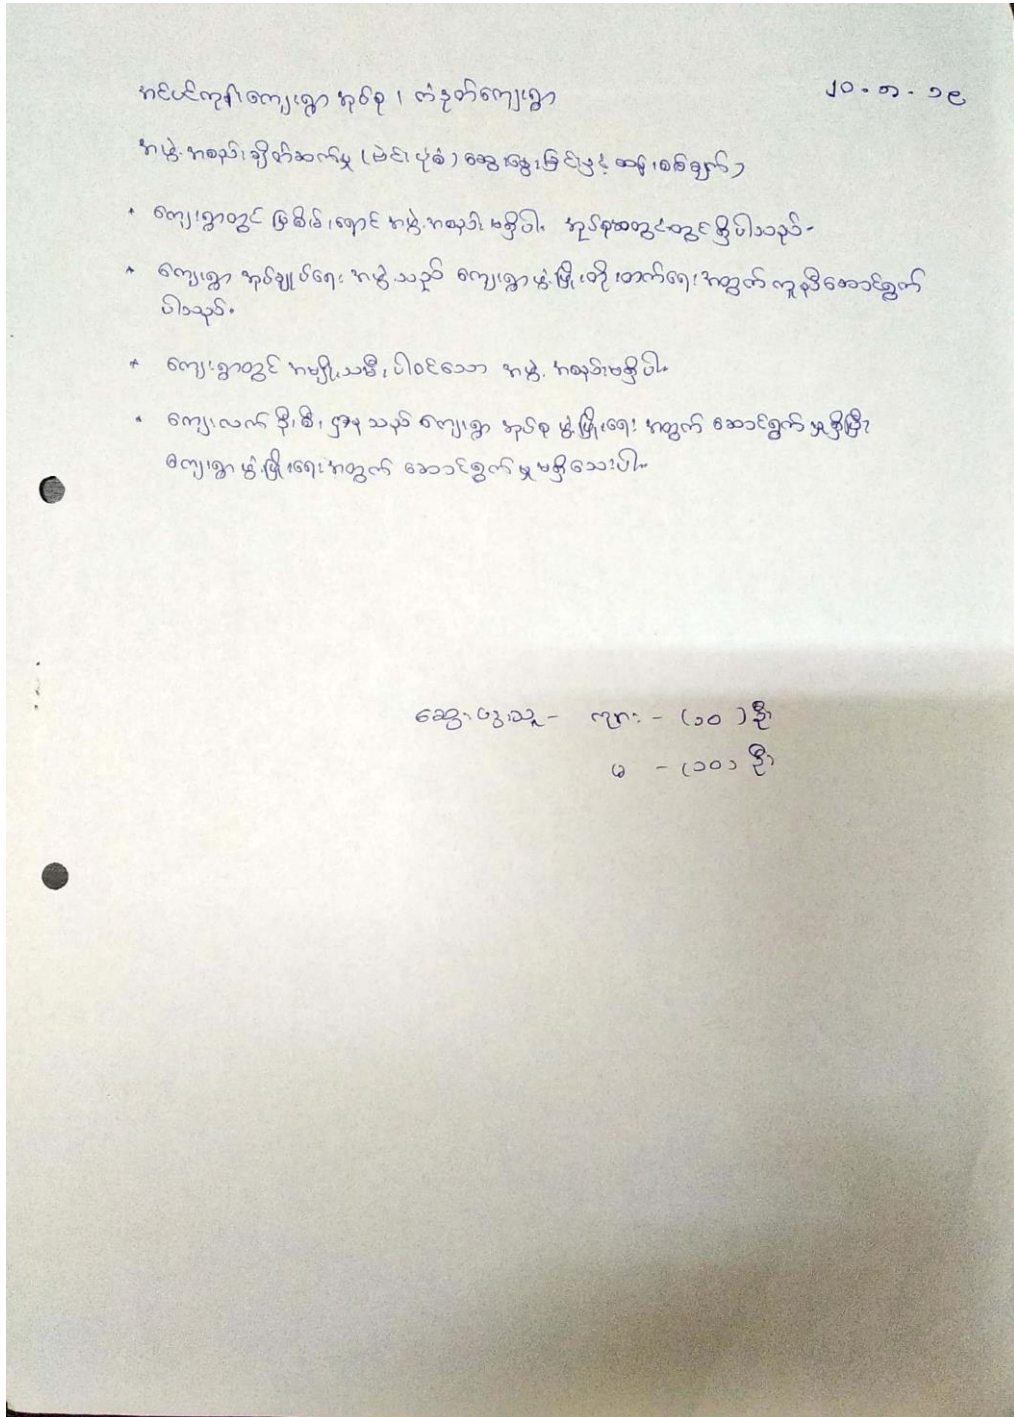 အင်ပင်ကုန်းကျေးရွာ အုပ်စု ၊ ကံနုတ်ကျေးရွာ ၂၀.၈.၁၉
အဖွဲ့အစည်းချိတ်ဆက်မှု (ဗဲင်းပုံစံ) ဆွေးနွေးခြင်းမှ ဆန်းစစ်ချက်)
* ကျေးရွာတွင် မြစိမ်းရောင် အဖွဲ့အစည်း မရှိပါ. အုပ်စုအတွင်းတွင်ရှိပါသည်-
* ကျေးရွာ အုပ်ချုပ်ရေး အဖွဲ့သည် ကျေးရွာဖွံ့ဖြိုးတိုးတက်ရေး အတွက် ကူညီဆောင်ရွက်
ပါသည်.
* ကျေးရွာတွင် အမျိုးသမီးပါဝင်သော အဖွဲ့ အစည်းမရှိပါ.
* ကျေးလက် ဦးစီး ဌာန သည် ကျေးရွာ အုပ်စု ဖွံ့ဖြိုးရေး အတွက် ဆောင်ရွက် မှုရှိပြီး
ကျေးရွာ ဖွံ့ဖြိုးရေးအတွက် ဆောင်ရွက် မှု မရှိသေးပါ.
ဆွေးနွေးသူ - ကျား - (၁၀) ဦး
မ - (၁၀) ဦး